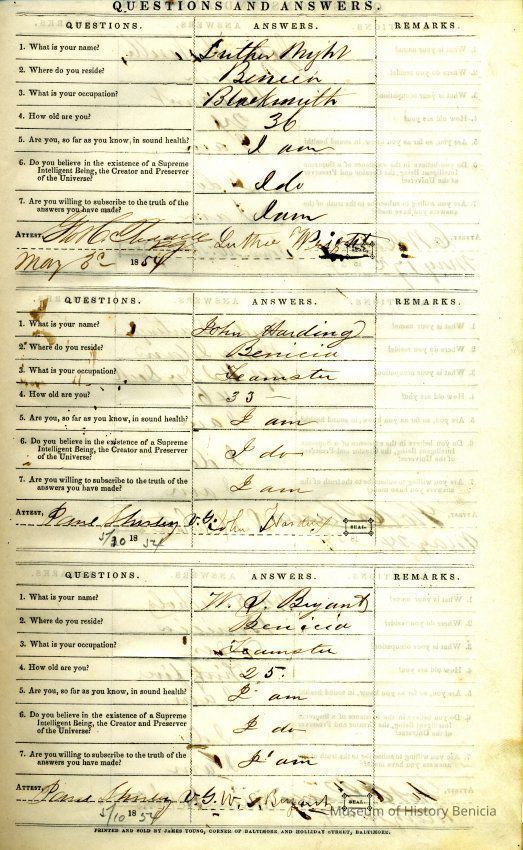 QUESTIONS AND ANSWERS.
QUESTIONS. ANSWERS. REMARKS.
1. What is your name? Luther
2. Where do you reside? Benicia
3. What is your occupation? Blacksmith
4. How old are you? 36
5. Are you, so far as you know, in sound health? I am
6. Do you believe in the existence of a Supreme
Intelligent Being, the Creator and Preserver
of the Universe? I do
7. Are you willing to subscribe to the truth of the
answers you have made? I am
ATTEST, Luther
May 3 1854
QUESTIONS. ANSWERS. REMARKS.
1. What is your name? John Harding
2. Where do you reside? Benicia
3. What is your occupation? Teamster
4. How old are you? 33
5. Are you, so far as you know, in sound health? I am
6. Do you believe in the existence of a Supreme
Intelligent Being, the Creator and Preserver
of the Universe? I do
7. Are you willing to subscribe to the truth of the
answers you have made? I am
ATTEST, Paul Shirley V. G. John Harding SEAL
5/10 1854
QUESTIONS. ANSWERS. REMARKS.
1. What is your name? W. S. Bryant
2. Where do you reside? Benicia
3. What is your occupation? Teamster
4. How old are you? 25.
5. Are you, so far as you know, in sound health? I am
6. Do you believe in the existence of a Supreme
Intelligent Being, the Creator and Preserver
of the Universe? I do
7. Are you willing to subscribe to the truth of the
answers you have made? I am
ATTEST, Paul Shirley V. G. W. S. Bryant SEAL
5/10 1854
Museum of History Benicia
PRINTED AND SOLD BY JAMES YOUNG, CORNER OF BALTIMORE AND HOLLIDAY STREET, BALTIMORE.